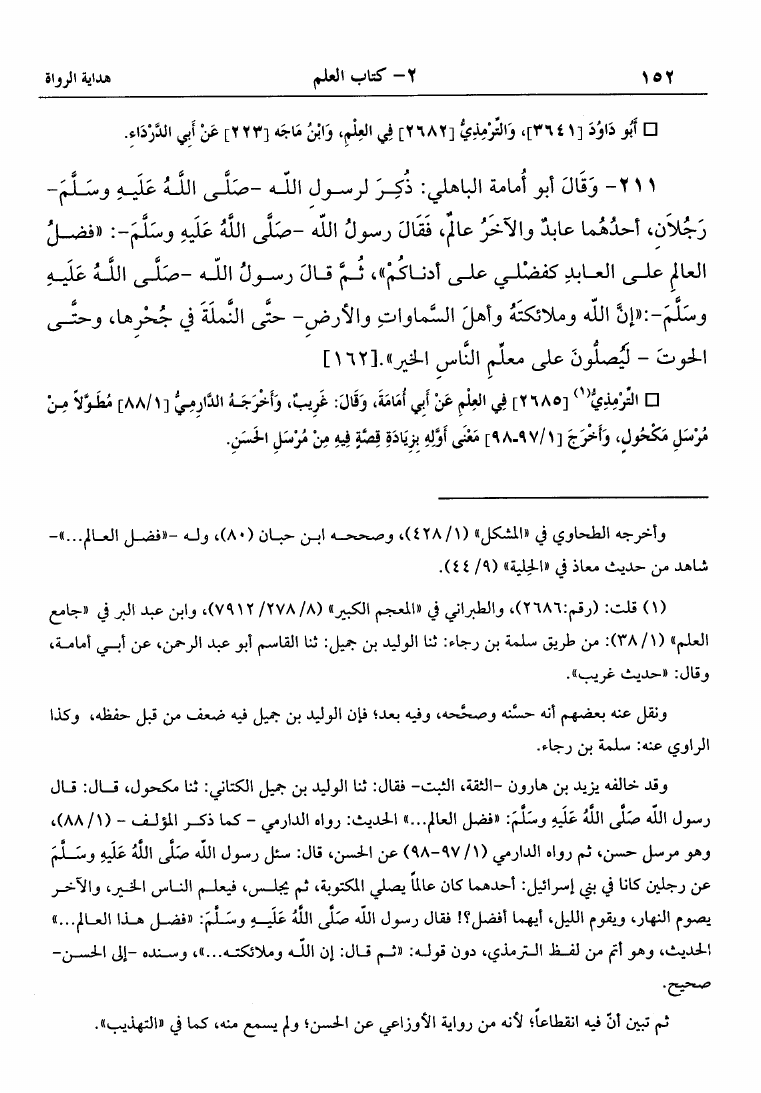 ١٥٢ ٢- كتاب العلم هداية الرواة
□ أَبُو دَاوُدَ [٣٦٤١]، وَالتِّرْمِذِيُّ [٢٦٨٢] فِي العِلْمِ، وَابْنُ مَاجَه [٢٢٣] عَنْ أَبِي الدَّرْدَاءِ.
٢١١- وَقَالَ أبو أُمامة الباهلي: ذُكِرَ لرسولِ اللّه -صَلَّى اللَّهُ عَلَيهِ وسَلَّمَ-
رَجُلاَنِ، أحدُهُما عابدٌ والآخَرُ عالمٌ، فَقَالَ رسولُ الله -صَلَّى اللَّهُ عَلَيهِ وسَلَّمَ-: «فضلُ
العالمِ على العابدِ كفضْلي على أدناكُمْ»، ثُمَّ قالَ رسولُ اللّه -صَلَّى اللَّهُ عَلَيهِ
وسَلَّمَ-:«إنَّ الله وملائكتَهُ وأهلَ السَّماواتِ والأرضِ- حتَّى النَّملَةَ في جُحْرِها، وحتَّى
الحوتَ - لَيُصلُّونَ على معلِّمِ النَّاسِ الخير».[١٦٢]
□ التِّرْمِذِيُّ(١) [٢٦٨٥] فِي العِلْمِ عَنْ أَبِي أُمَامَةَ، وَقَالَ: غَرِيبٌ، وَأَخْرَجَهُ الدَّارِمِيُّ [٨٨/١] مُطَوَّلاً مِنْ
مُرْسَلِ مَكْحُولٍ، وَأَخْرَجَ [٩٧/١-٩٨] مَعْنَى أَوَّلِهِ بِزِيَادَةِ قِصَّةٍ فِيهِ مِنْ مُرْسَلِ الحَسَنِ.
وأخرجه الطحاوي في «المشكل» (٤٢٨/١)، وصححه ابن حبان (٨٠)، وله -«فضل العالم...»-
شاهد من حديث معاذ في «الحِلية» (٤٤/٩).
(١) قلت: (رقم:٢٦٨٦)، والطبراني في «المعجم الكبير» (٧٩١٢/٢٧٨/٨)، وابن عبد البر في «جامع
العلم» (٣٨/١): من طريق سلمة بن رجاء: ثنا الوليد بن جميل: ثنا القاسم أبو عبد الرحمن، عن أبي أمامة،
وقال: «حديث غريب».
ونقل عنه بعضهم أنه حسَّنه وصحَّحه، وفيه بعد؛ فإن الوليد بن جميل فيه ضعف من قبل حفظه، وكذا
الراوي عنه: سلمة بن رجاء.
وقد خالفه يزيد بن هارون -الثقة، الثبت- فقال: ثنا الوليد بن جميل الكناني: ثنا مكحول، قال: قال
رسول الله صَلَّى اللَّهُ عَلَيهِ وسَلَّمَ: «فضل العالم...» الحديث: رواه الدارمي - كما ذكر المؤلف - (٨٨/١)،
وهو مرسل حسن، ثم رواه الدارمي (٩٧/١-٩٨) عن الحسن، قال: سئل رسول الله صَلَّى اللَّهُ عَلَيهِ وسَلَّمَ
عن رجلين كانا في بني إسرائيل: أحدهما كان عالماً يصلي المكتوبة، ثم يجلس، فيعلم الناس الخير، والآخر
يصوم النهار، ويقوم الليل، أيهما أفضل؟! فقال رسول الله صَلَّى اللَّهُ عَلَيهِ وسَلَّمَ: «فضل هذا العالم...»
الحديث، وهو أتم من لفظ الترمذي، دون قوله: «ثم قال: إن اللّه وملائكته...»، وسنده -إلى الحسن-
صحيح.
ثم تبين أنّ فيه انقطاعاً؛ لأنه من رواية الأوزاعي عن الحسن؛ ولم يسمع منه، كما في «التهذيب».